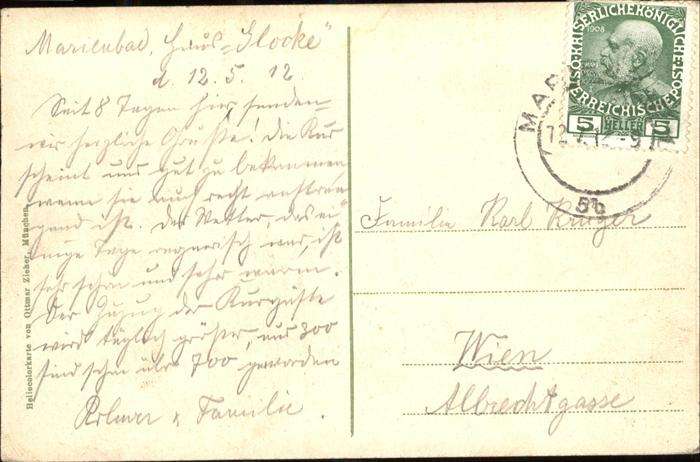 Marienbad, Haus „Glocke"
d. 12.5.12
Seit 8 Tagen hier, senden
wir herzliche Grüsse! Die Kur
scheint uns gut zu bekommen,
wenn sie auch recht anstren
gend ist. Das Wetter, das ei
nige Tage regnerisch war, ist
sehr schön und sehr warm.
Der Zuzug der Kurgäste
wird täglich größer, aus 300
sind schon über 700 geworden
& Familie.
Hellocolorkarte von Ottmar Zieher, München.
KAISERLICHE KÖNIGLICHE ÖSTERREICHISCHE POST
1908
5 HELLER 5
MAR
5b
Familie Karl Krüger
Wien
Albrechtgasse